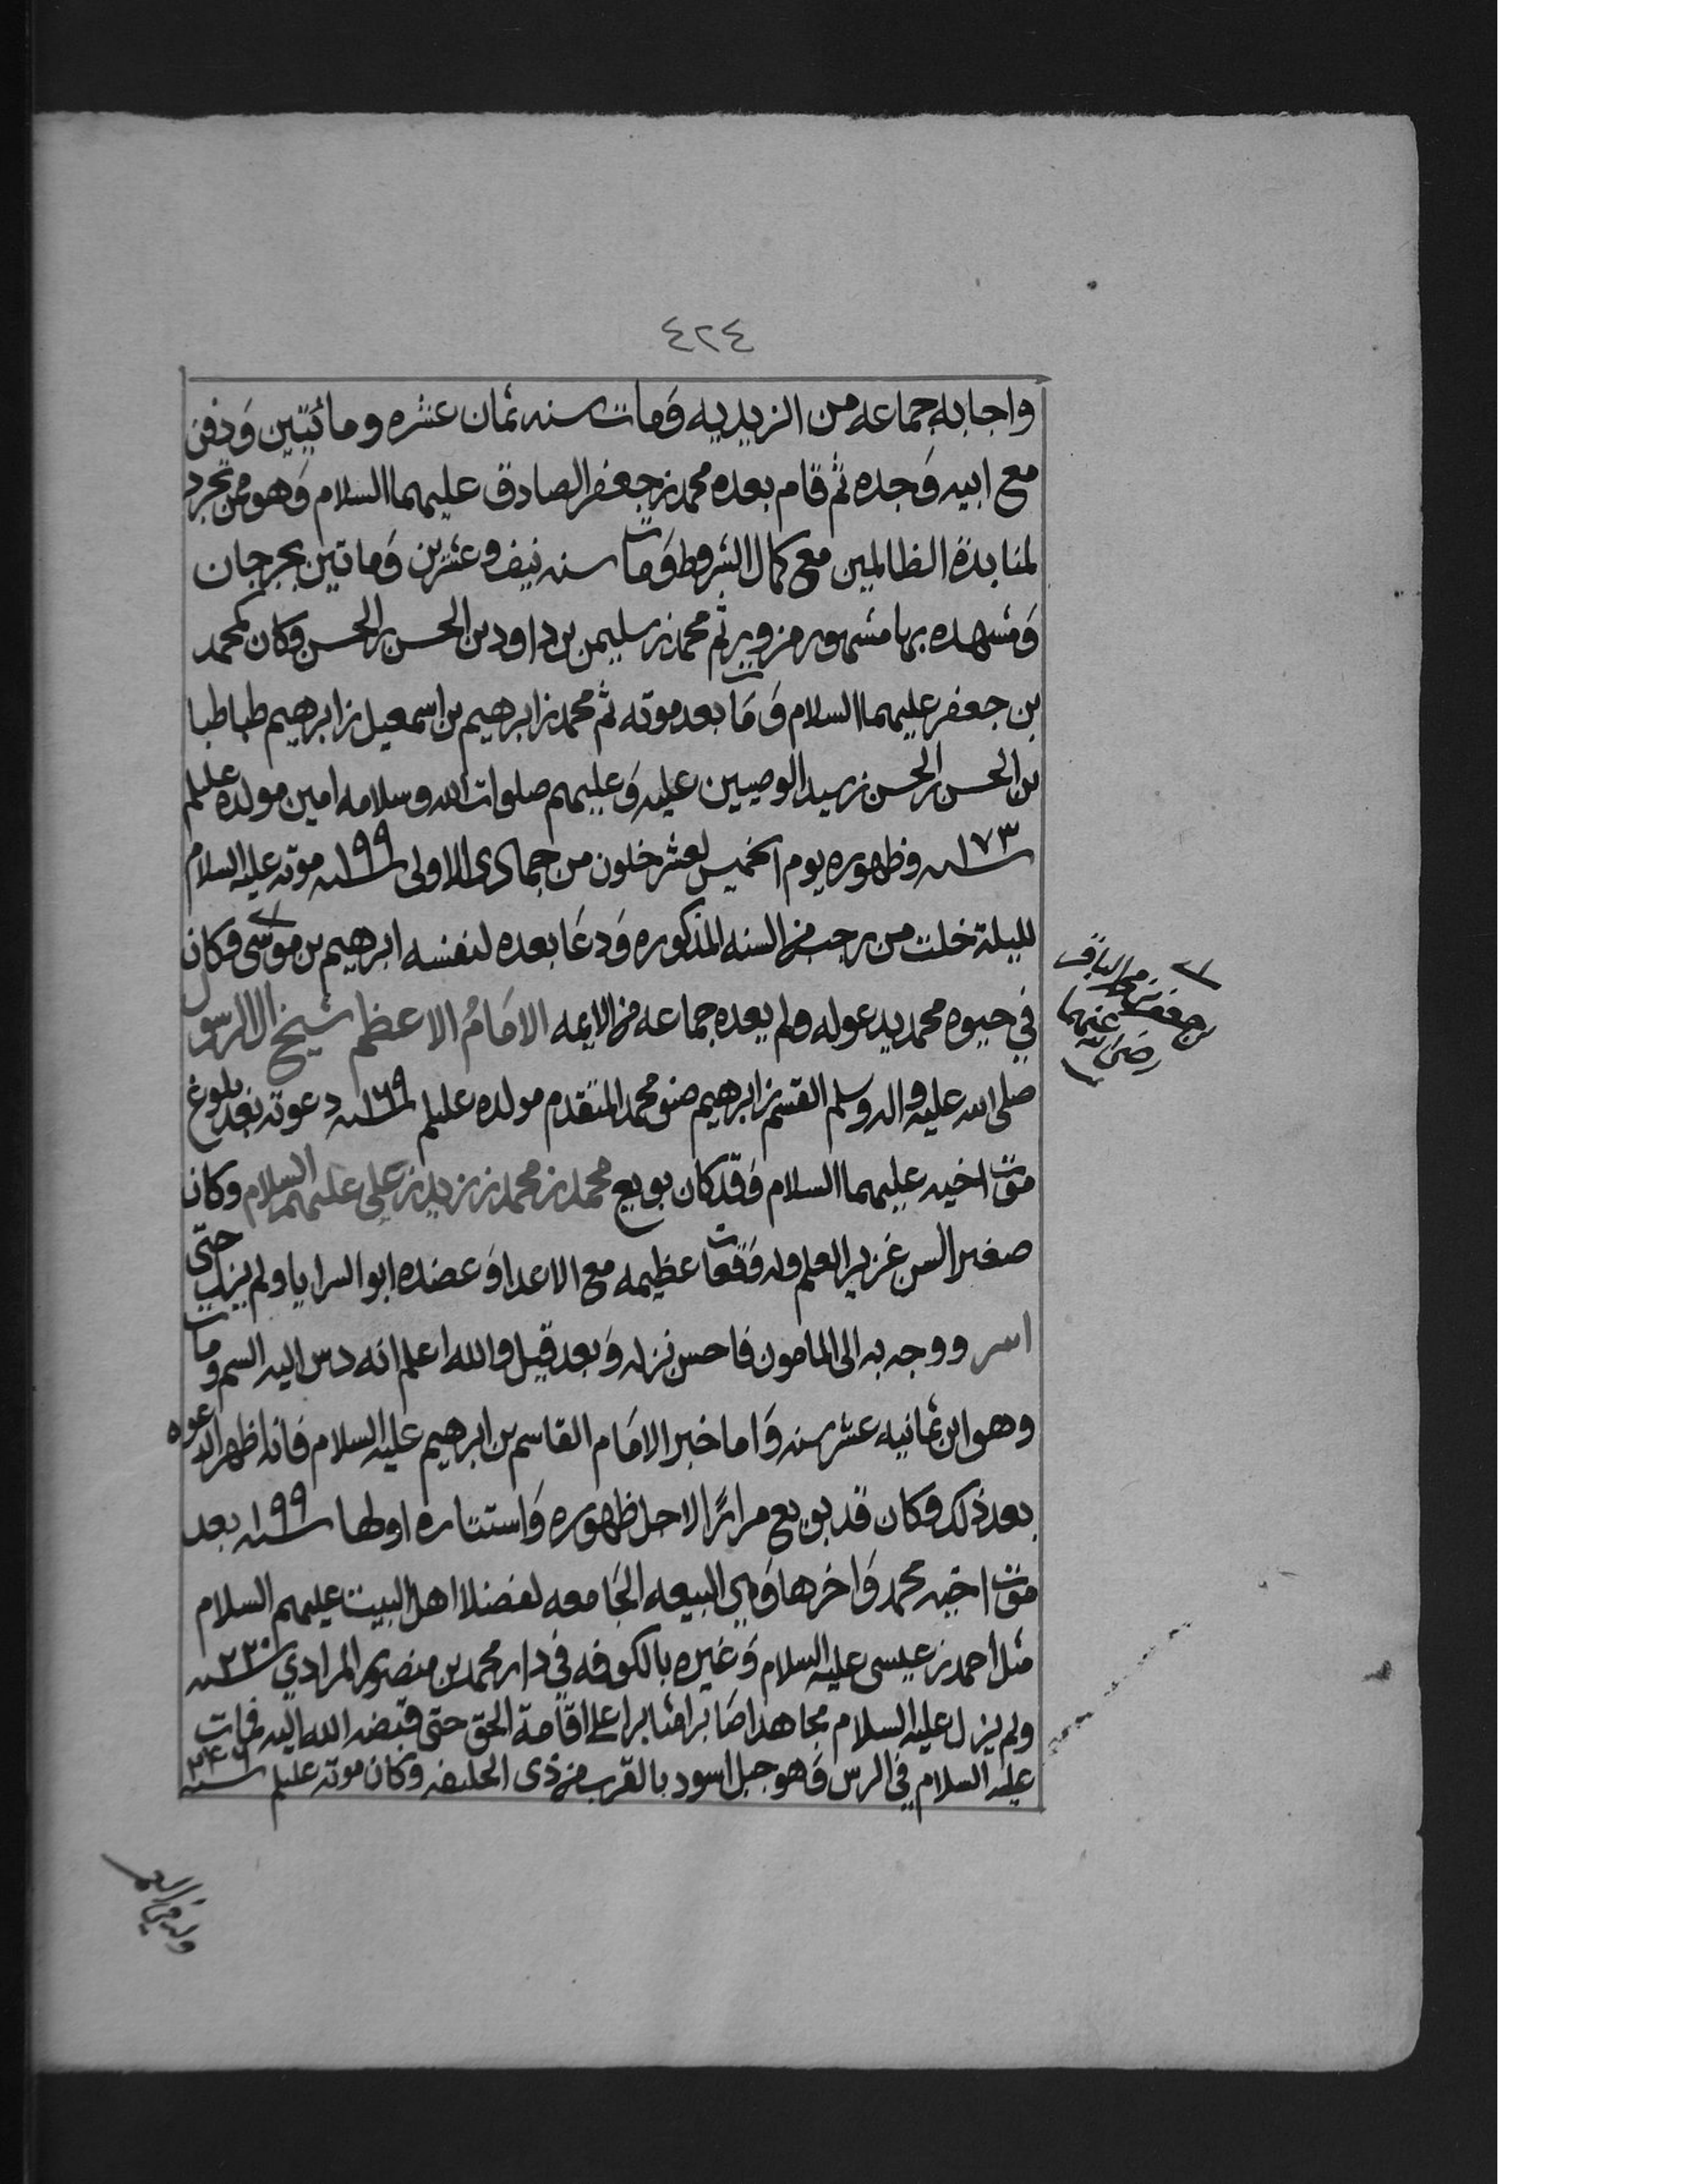 ٤٢٤
واجابه جماعه من الزيديه ومات سنه ثمان عشره ومائتين ودفن
مع ابيه وجده ثم قام بعده محمد بن جعفر الصادق عليهما السلام وهو ممن تجرد
لمنابذة الظالمين مع كمال الشروط ومات سنه نيف وعشرين وماتين بجرجان
ومشهده بها مشهور مزور ثم محمد بن سليمن بن داود بن الحسن بن الحسن وكان كمحمد
بن جعفر عليهما السلام ومات بعد موته ثم محمد بن ابرهيم بن اسمعيل بن ابرهيم طباطبا
بن الحسن بن الحسن بن سيد الوصيين عليه وعليهم صلوات الله وسلامه امين مولده عليلم
سنه ١٧٣ وظهوره يوم الخميس لعشر خلون من جمادى الاولى سنه ١٩٩ موته عليه السلام
لليلة خلت من رجب من السنه المذكوره ودعا بعده لنفسه ابرهيم بن موسى وكان
بن جعفر بن محمد الباقر
رضي الله عنهما
في حيوه محمد يدعو له ولم يعده جماعه من الايمه الامام الاعظم شيخ ال الرسول
صلى الله عليه واله وسلم القسم بن ابرهيم صنو محمد المتقدم مولده عليلم سنه ١٦٩ دعوته بعد بلوغ
موت اخيه عليهما السلام وقد كان بويع محمد بن محمد بن زيد بن علي عليهم السلام وكان
صغير السن غزير العلم وله وقعات عظيمه مع الاعدا وعضده ابو السرايا ولم يزل حتى
اسر ووجه به الى المامون فاحسن نزله وبعد قيل والله اعلم انه دس اليه السم ومات
وهو ابن ثمانيه عشر سنه واما خبر الامام القاسم بن ابرهيم عليه السلام فانه اظهر الدعوه
بعد ذلك وكان قد بويع مرارًا لاجل ظهوره واستتاره اولها سنه ١٩٩ بعد
موت اخيه محمد واخرها وهي البيعه الجامعه لفضلا اهل البيت عليهم السلام
مثل احمد بن عيسى عليه السلام وغيره بالكوفه في دار محمد بن منصور المرادي سنه ٢٢٠
ولم يزل عليه السلام مجاهدا صابرا مثابرا على اقامة الحق حتى قبضه الله اليه فمات
عليه السلام في الرس وهو جبل اسود بالقرب من ذى الحليفه وكان موته عليلم سنه ٢٤٦